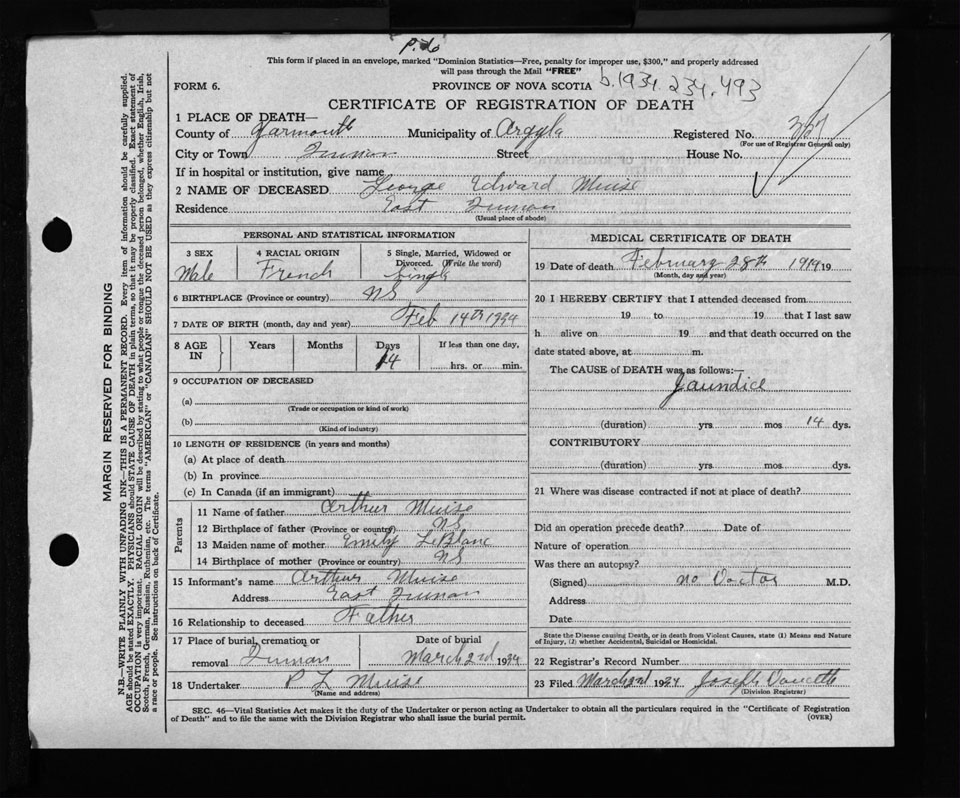 p.16
This form if placed in an envelope, marked "Dominion Statistics—Free, penalty for improper use, $300," and properly addressed
will pass through the Mail "FREE"
FORM 6. PROVINCE OF NOVA SCOTIA b.1934.234.493
CERTIFICATE OF REGISTRATION OF DEATH
1 PLACE OF DEATH—
County of Yarmouth Municipality of Argyle Registered No. 327
(For use of Registrar General only)
City or Town Street House No.
If in hospital or institution, give name
2 NAME OF DECEASED George Edward Muise
Residence East
(Usual place of abode)
PERSONAL AND STATISTICAL INFORMATION
3 SEX 4 RACIAL ORIGIN 5 Single, Married, Widowed or
Divorced. (Write the word)
Male French Single
6 BIRTHPLACE (Province or country) NS
7 DATE OF BIRTH (month, day and year) Feb 14th
8 AGE IN Years Months Days If less than one day,
14 hrs. or min.
9 OCCUPATION OF DECEASED
(a)
(Trade or occupation or kind of work)
(b)
(Kind of industry)
10 LENGTH OF RESIDENCE (in years and months)
(a) At place of death
(b) In province
(c) In Canada (if an immigrant)
Parents
11 Name of father Arthur Muise
12 Birthplace of father (Province or country) NS
13 Maiden name of mother Emily LeBlanc
14 Birthplace of mother (Province or country) NS
15 Informant's name Arthur Muise
Address East
16 Relationship to deceased Father
17 Place of burial, cremation or Date of burial
removal March 2nd 19
18 Undertaker P L Muise
(Name and address)
MEDICAL CERTIFICATE OF DEATH
19 Date of death February 28th 19
(Month, day and year)
20 I HEREBY CERTIFY that I attended deceased from
19 to 19 that I last saw
h alive on 19 and that death occurred on the
date stated above, at m.
The CAUSE of DEATH was as follows:—
Jaundice
(duration) yrs mos 14 dys.
CONTRIBUTORY
(duration) yrs mos dys.
21 Where was disease contracted if not at place of death?
Did an operation precede death? Date of
Nature of operation
Was there an autopsy?
(Signed) no Doctor M.D.
Address
Date
State the Disease causing Death, or in death from Violent Causes, state (1) Means and Nature
of Injury, (2) whether Accidental, Suicidal or Homicidal.
22 Registrar's Record Number
23 Filed March 2nd 19 Joseph Doucette
(Division Registrar)
SEC. 46—Vital Statistics Act makes it the duty of the Undertaker or person acting as Undertaker to obtain all the particulars required in the "Certificate of Registration
of Death" and to file the same with the Division Registrar who shall issue the burial permit. (OVER)
MARGIN RESERVED FOR BINDING
N.B.—WRITE PLAINLY WITH UNFADING INK—THIS IS A PERMANENT RECORD. Every item of information should be carefully supplied.
AGE should be stated EXACTLY. PHYSICIANS should STATE CAUSE OF DEATH in plain terms, so that it may be properly classified. Exact statement of
OCCUPATION is very important. RACIAL ORIGIN will be described by stating to what people or tongue the deceased person belonged, whether English, Irish,
Scotch, French, German, Russian, Ruthenian, etc. The terms "AMERICAN" or "CANADIAN" SHOULD NOT BE USED as they express citizenship but not
a race or people. See instructions on back of Certificate.